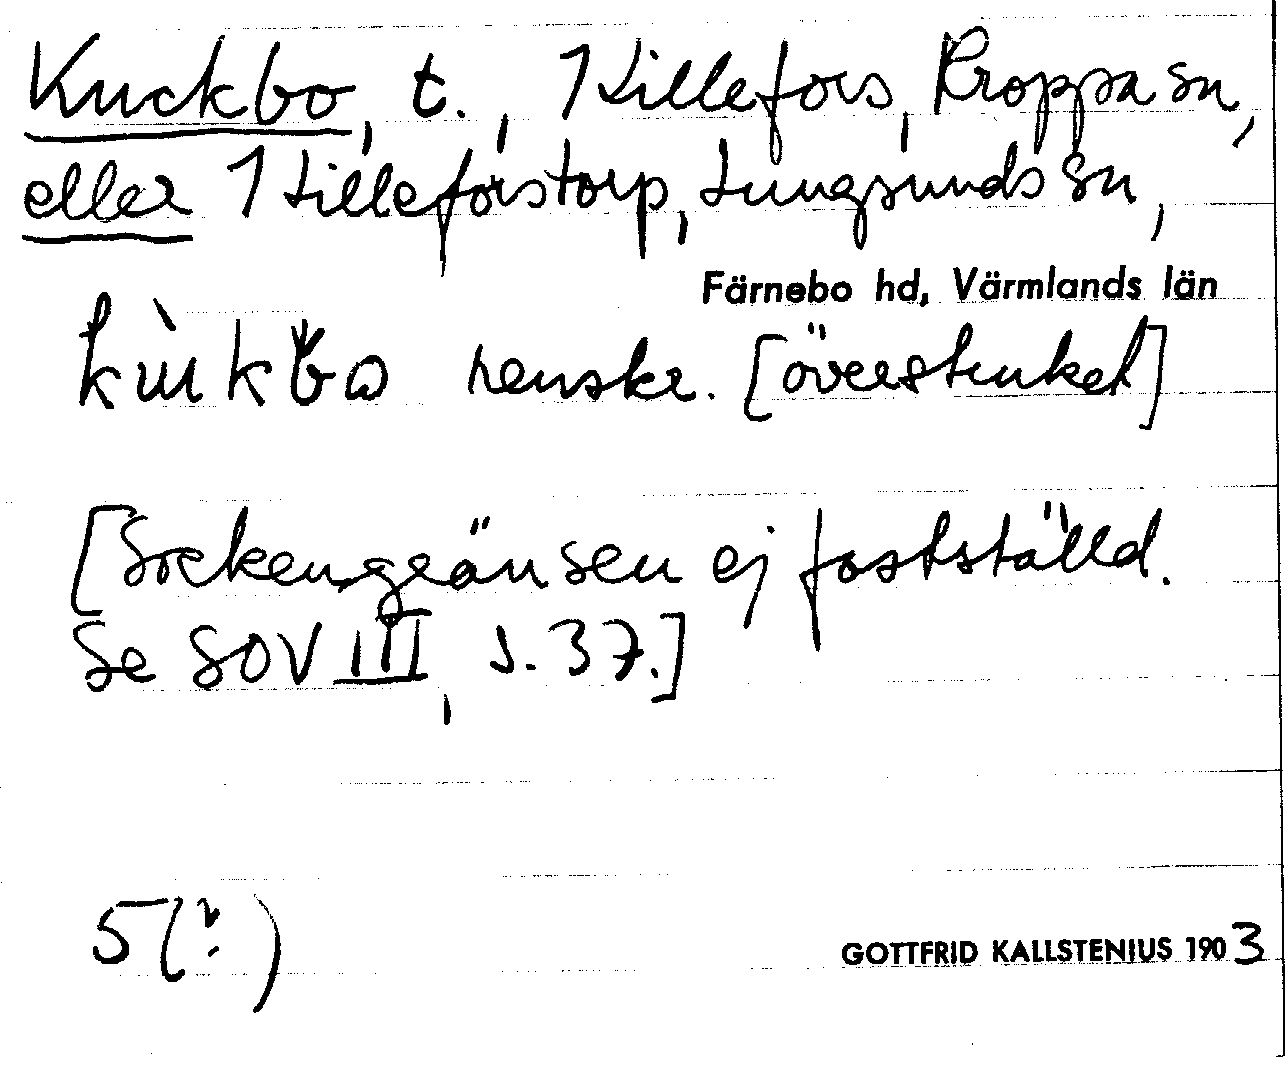 Kuckbo, t., 1 Lillefors, Kroppa sn,
eller 1 Lilleforstorp, Lungsunds sn,
Färnebo hd, Värmlands län
kùkbo renskr. [överstruket]
[Sockengränsen ej fastställd.
Se SOV III, s. 37.]
5(?)
GOTTFRID KALLSTENIUS 1903